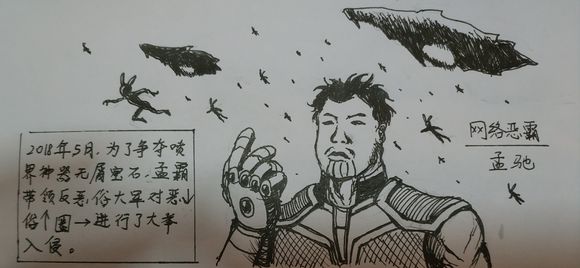 2018年5月,为了争夺喷
界神器无屑宝石,孟霸
带领反恶俗大军对恶
俗个圈→进行了大举
入侵。
网络恶霸
孟驰